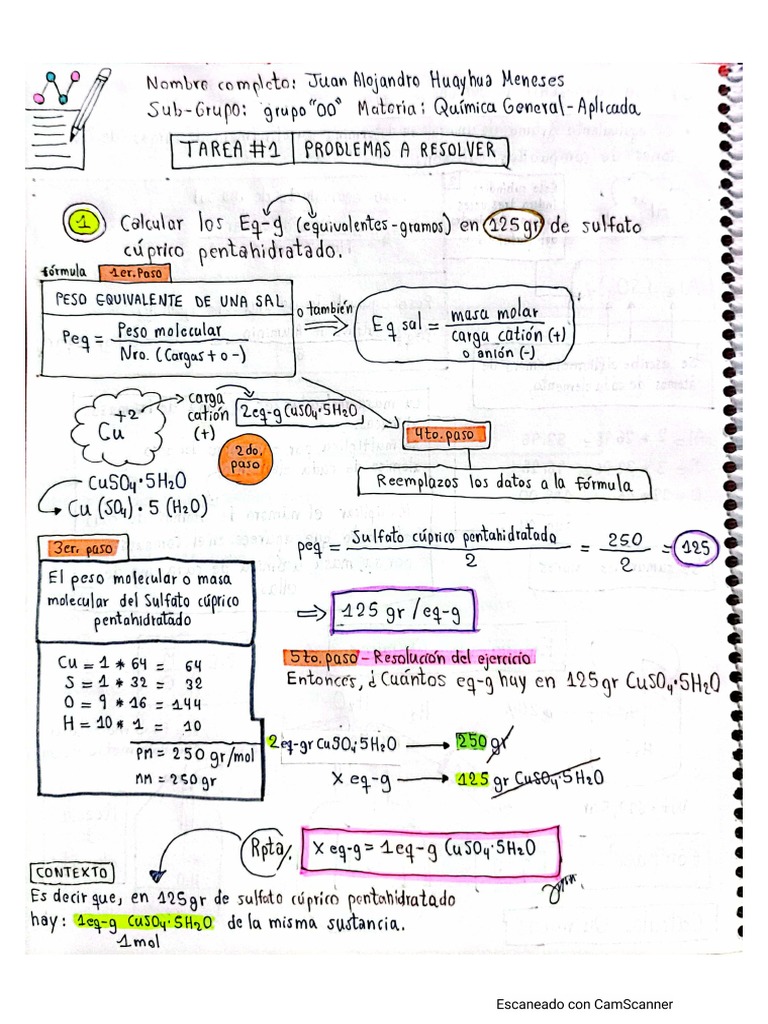 Nombre completo: Juan Alojandro Huayhua Meneses
Sub-Grupo: grupo "00" Materia: Química General-Aplicada
TAREA #1 PROBLEMAS A RESOLVER
1 Calcular los Eq-g (equivalentes-gramos) en 125gr de sulfato
cúprico pentahidratado.
fórmula 1er. Paso
PESO EQUIVALENTE DE UNA SAL
Peq = Peso molecular / Nro. (Cargas + o -)
o también
Eq sal = masa molar / carga catión (+) o anión (-)
Cu +2
carga catión (+)
2eq-g CuSO4·5H2O
2do. paso
4to. paso
Reemplazos los datos a la fórmula
CuSO4·5H2O
Cu (SO4) · 5 (H2O)
peq = Sulfato cúprico pentahidratado / 2 = 250 / 2 = 125
3er. paso
El peso molecular o masa
molecular del Sulfato cúprico
pentahidratado
⇒ 125 gr/eq-g
Cu = 1 * 64 = 64
S = 1 * 32 = 32
O = 9 * 16 = 144
H = 10 * 1 = 10
pm = 250 gr/mol
mm = 250 gr
5to. paso - Resolución del ejercicio
Entonces, ¿Cuántos eq-g hay en 125gr CuSO4·5H2O
2eq-gr CuSO4·5H2O → 250 gr
X eq-g → 125 gr CuSO4·5H2O
Rpta/. X eq-g = 1eq-g CuSO4·5H2O
CONTEXTO
Es decir que, en 125gr de sulfato cúprico pentahidratado
hay: 1eq-g CuSO4·5H2O de la misma sustancia.
1mol
Escaneado con CamScanner